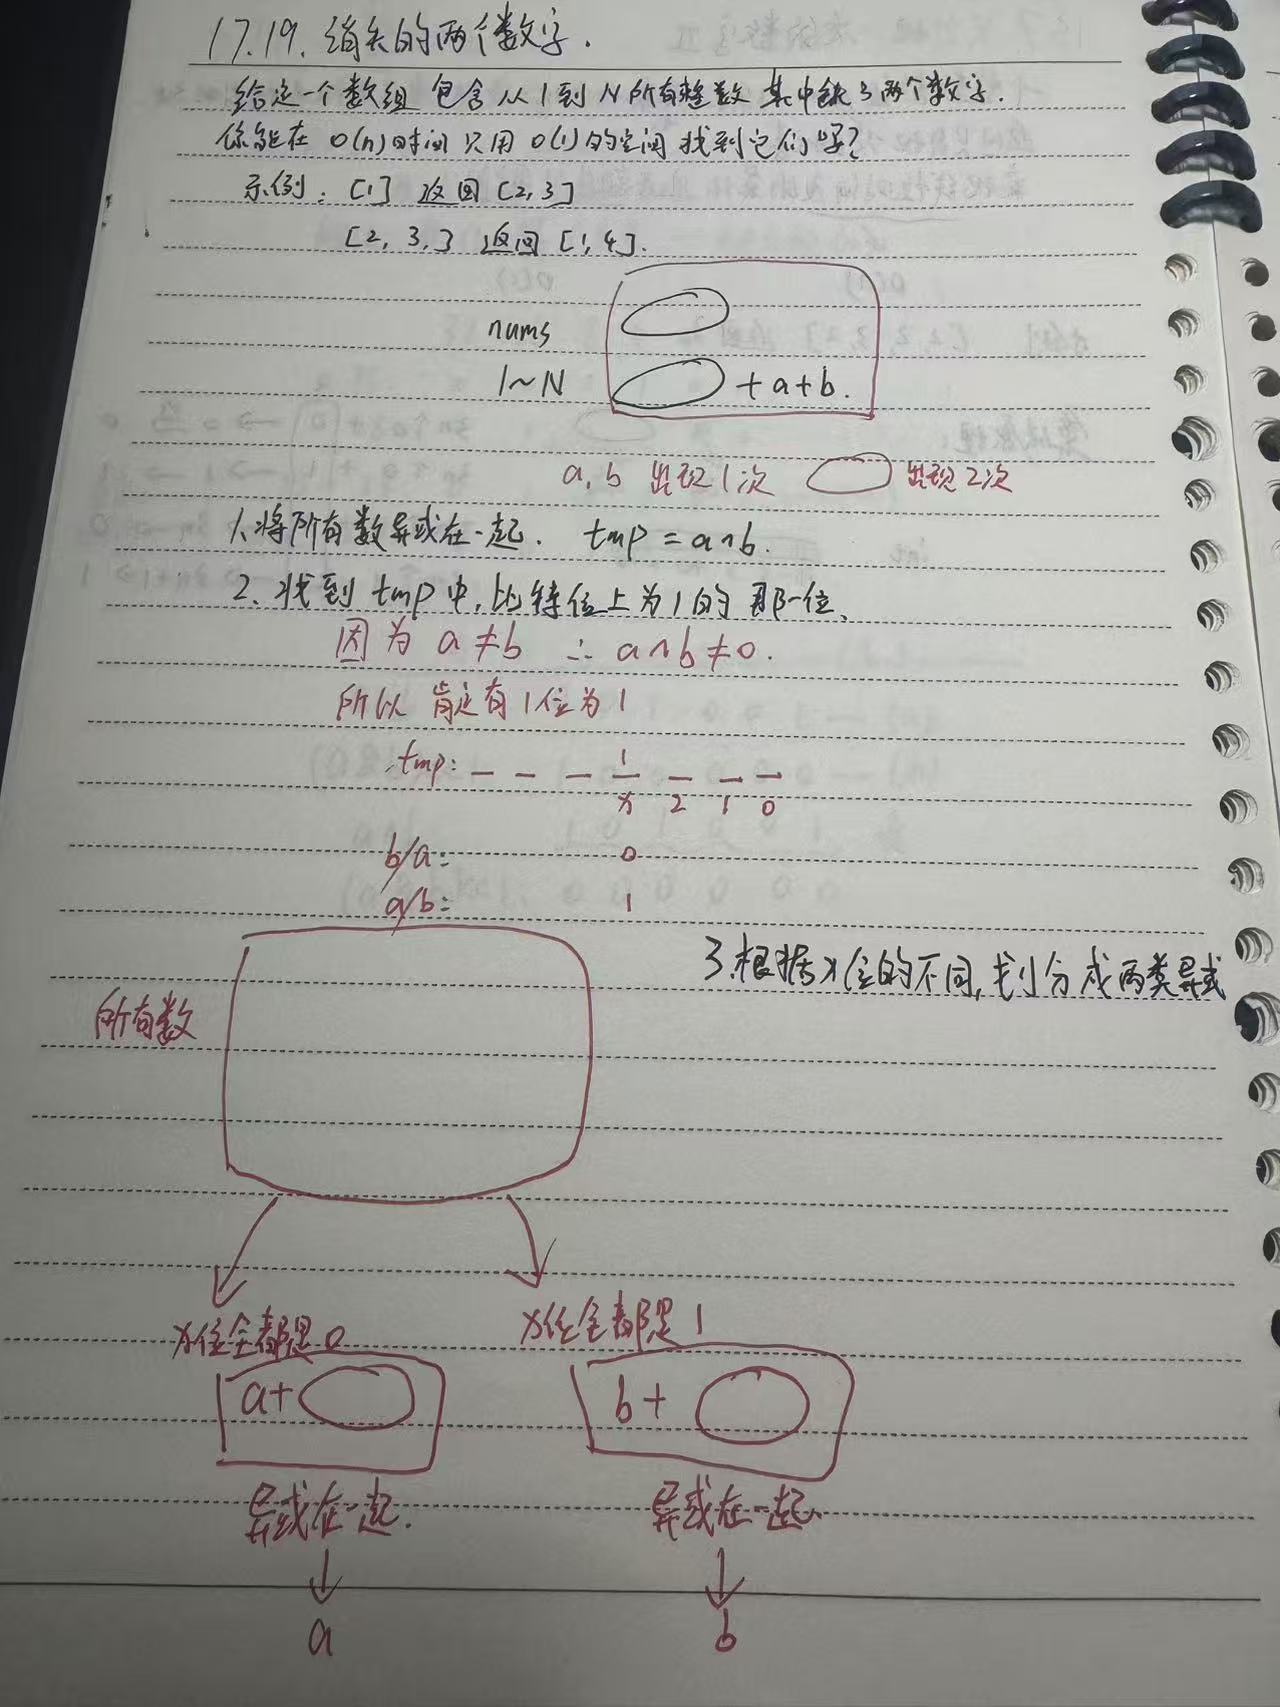 17.19. 消失的两个数字.
给定一个数组 包含从1到N所有整数 其中缺了两个数字.
你能在 O(n)时间 只用 O(1)的空间 找到它们吗?
示例: [1] 返回 [2,3]
[2, 3,] 返回 [1,4].
nums
1~N + a+b.
a, b 出现1次 出现2次
1.将所有数异或在一起. tmp = a^b.
2. 找到 tmp 中, 比特位上为1的 那一位.
因为 a≠b ∴ a^b≠0.
所以 肯定有1位为1
tmp: _ _ _ 1 _ _ _
x 2 1 0
b/a: 0
a/b: 1
3.根据x位的不同,划分成两类异或
所有数
x位全都是0 x位全都是1
a+ b+
异或在一起. 异或在一起.
a b